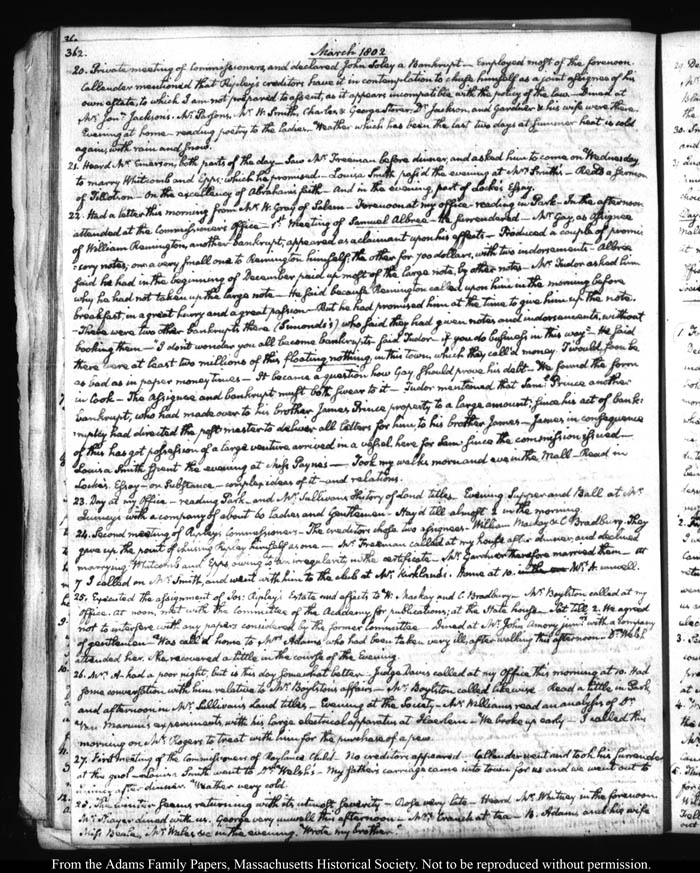 362.
March 1802
20. Private meeting of Commissioners, and declared John Soley a Bankrupt — Employed most of the forenoon.
Callender mentioned that Ripley's creditors have it in contemplation to chuse himself as a joint assignee of his
own estate, to which I am not prepared to assent, as it appears incompatible with the policy of the law — Dined at
Mr. Jonn. Jacksons. Mr. Parsons, Mr. W. Smith, Charles & George Storer, Dr. Jackson, and Gardner & his wife were there.
Evening at home — reading poetry to the ladies. Weather which has been the last two days at summer heat is cold
again, with rain and snow.
21. Heard Mr. Emerson, both parts of the day — Saw Mr. Freeman before dinner, and asked him to come on Wednesday
to marry Whitcomb and Epps; which he promised — Louisa Smith pass'd the evening at Mr. Smith's — Read a sermon
of Tillotson — On the excellency of Abraham's faith — And in the evening, part of Locke's Essay.
22. Had a letter this morning from Mr. W. Gray of Salem — Forenoon at my office reading in Park — In the afternoon
attended at the Commissioners Office — 1st. Meeting of Samuel Albree — He surrendered — Mr. Gay, as assignee
of William Remington, another bankrupt, appeared as a claimant upon his effects — Produced a couple of promis
sory notes; one a very small one to Remington himself, the other for 700 dollars, with two indorsements — Albree
said he had in the beginning of December paid up most of the large note, by other notes — Mr. Tudor asked him
why he had not taken up the large note — He said because Remington called upon him in the morning before
breakfast, in a great hurry and a great passion — But he had promised him at the time to give him up the note.
— There were two other bankrupts there (Simonds's) who said they had given notes and indorsements, without
booking them — I don't wonder you all become bankrupts said Tudor if you do business in this way — He said
there were at least two millions of this floating nothing, in this town, which they call'd money. T'would soon be
as bad as in paper money times — It became a question how Gay should prove his debt — We found the form
in Cook — The assignee and bankrupt must both swear to it — Tudor mentioned that Saml. Prince another
bankrupt, who had made over to his brother James Prince property to a large amount; since his act of bank:
ruptcy had directed the post master to deliver all letters for him, to his brother James — James in consequence
of this has got possession of a large venture arrived in a vessel here for Sam since the commission issued —
Louisa Smith spent the evening at Miss Paynes — Took my walks morn and eve in the Mall — Read in
Locke's Essay — on Substance — complex ideas of it — and relations.
23. Day at my Office — reading Park — and Mr. Sullivans History of Land titles. Evening Supper and Ball at Mr.
Quincy's with a company of about 60 Ladies and Gentlemen — Stay'd till almost 2 in the morning.
24. Second meeting of Ripley's Commissioners — The creditors chose two assignees William Mackay & C Bradbury. They
gave up the point of chusing Ripley himself as one — Mr. Freeman called at my house after dinner, and declined
marrying Whitcomb and Epps owing to an irregularity in the certificate. Mr. Gardner therefore married them — At
7 I called on Mr. Smith, and went with him to the club at Mr. Kirkland's. Home at 10. Mrs. A. unwell.
25. Executed the assignment of Jos: Ripley's Estate and effects to W. Mackay and C. Bradbury — Mr. Boylston called at my
office. At noon, met with the Committee of the Academy for publications; at the State house — Sat till 2. We agreed
not to interfere with any papers considered by the former Committee — Dined at Mr. John Amory junr's. with a company
of gentlemen — Was call'd home to Mrs. Adams, who had been taken very ill, after walking this afternoon — Dr. Welsh
attended her. She recovered a little in the course of the Evening.
26. Mrs. A— had a poor night, but is this day somewhat better — Judge Davis called at my Office this morning at 10. Had
some conversation with him relative to Mr. Boylston's affairs — Mr. Boylston called likewise — Read a little in Park
and afternoon in Mr. Sullivans Land titles — Evening at the Society — Mr. Williams read an analysis of Dr.
Van Marum's experiments, with his large electrical apparatus at Haerlem — We broke up early — I called this
morning on Mr. Rogers to treat with him for the purchase of a pew.
27. First meeting of the Commissioners of Child — No creditors appeared — Callender went and took his surrender
at the gaol — Louisa Smith went to Dr. Welsh's — My fathers carriage came into town for us and we went out to
Quincy after dinner. Weather very cold.
28. The winter seems returning with its utmost severity — Rose very late — Heard Mr. Whitney in the forenoon
Mr. Thayer dined with us. George very unwell this afternoon — Mrs. Cranch at tea — B. Adams and his wife
Miss Beale, Mr. Wales &c in the evening. Wrote my brother.
From the Adams Family Papers, Massachusetts Historical Society. Not to be reproduced without permission.